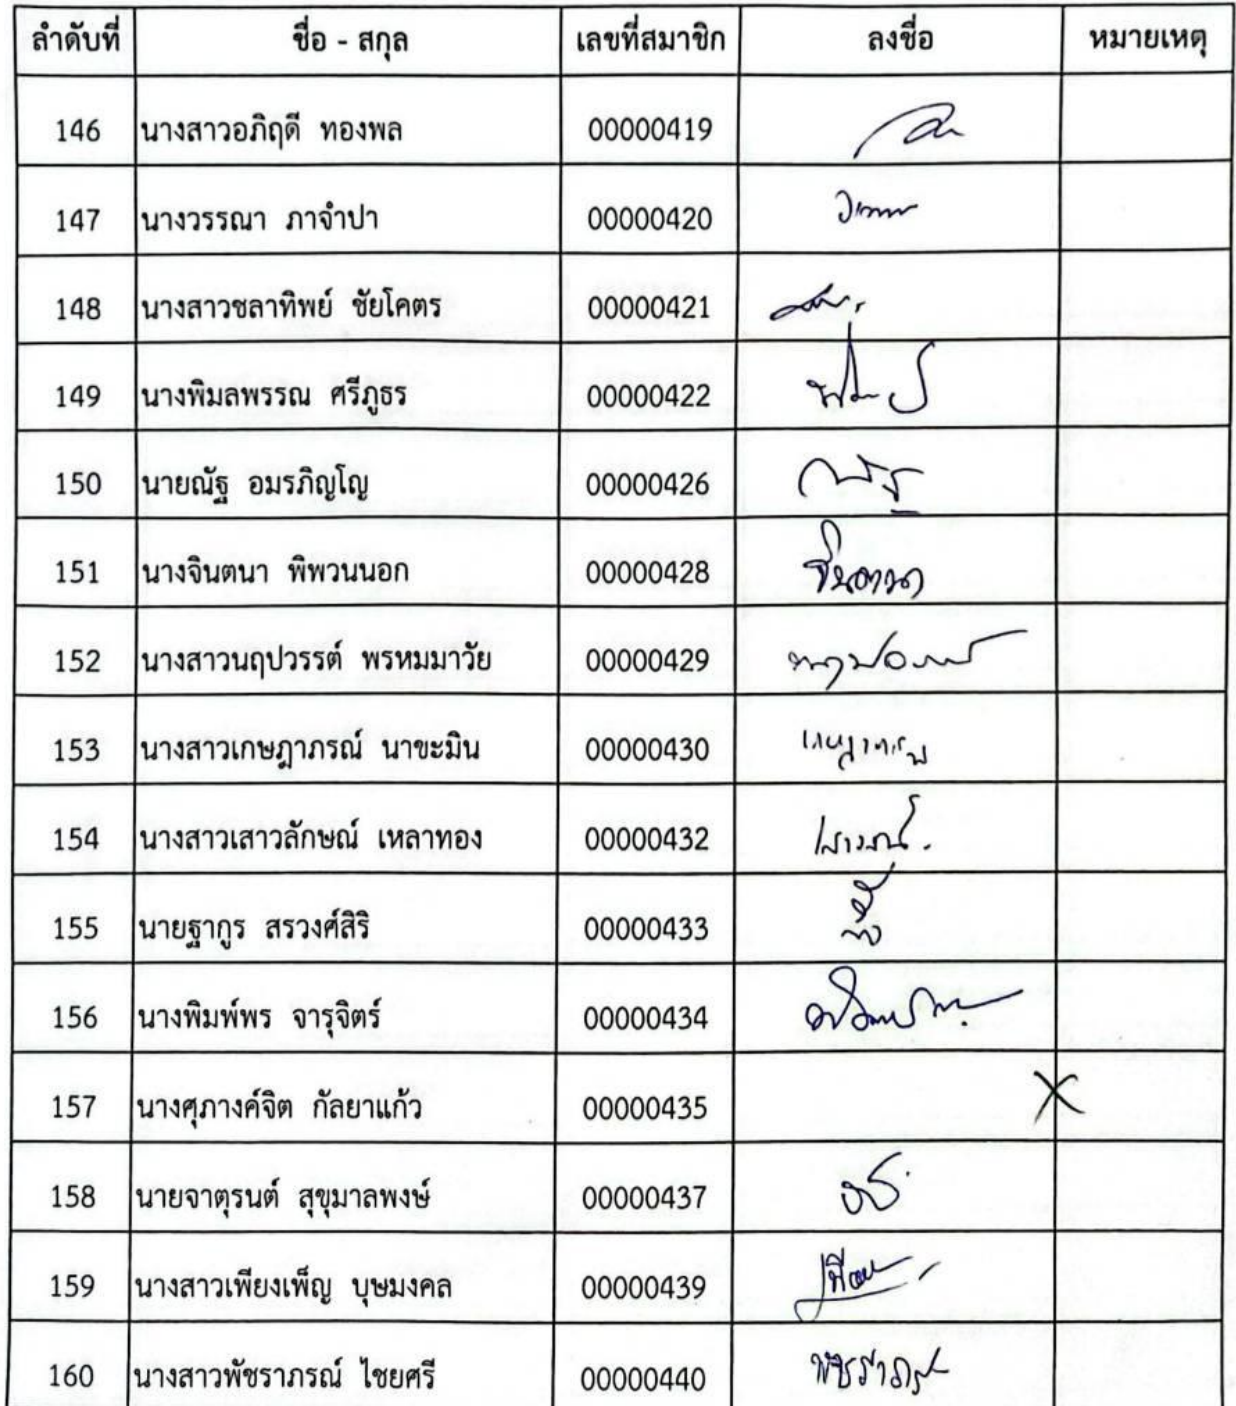 ลำดับที่ ชื่อ - สกุล เลขที่สมาชิก ลงชื่อ หมายเหตุ
146 นางสาวอภิฤดี ทองพล 00000419
147 นางวรรณา ภาจำปา 00000420
148 นางสาวชลาทิพย์ ชัยโคตร 00000421
149 นางพิมลพรรณ ศรีภูธร 00000422
150 นายณัฐ อมรภิญโญ 00000426 ณัฐ
151 นางจินตนา พิพวนนอก 00000428 จินตนา
152 นางสาวนฤปวรรต์ พรหมมาวัย 00000429
153 นางสาวเกษฎาภรณ์ นาขะมิน 00000430
154 นางสาวเสาวลักษณ์ เหลาทอง 00000432
155 นายฐากูร สรวงศ์สิริ 00000433
156 นางพิมพ์พร จารุจิตร์ 00000434
157 นางศุภางค์จิต กัลยาแก้ว 00000435 X
158 นายจาตุรนต์ สุขุมาลพงษ์ 00000437
159 นางสาวเพียงเพ็ญ บุษมงคล 00000439
160 นางสาวพัชราภรณ์ ไชยศรี 00000440